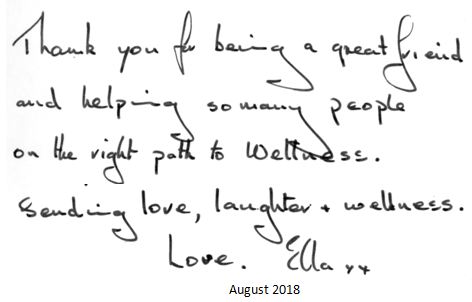 Thank you for being a great friend
and helping so many people
on the right path to Wellness.
Sending love, laughter + wellness.
Love. Ella xx
August 2018